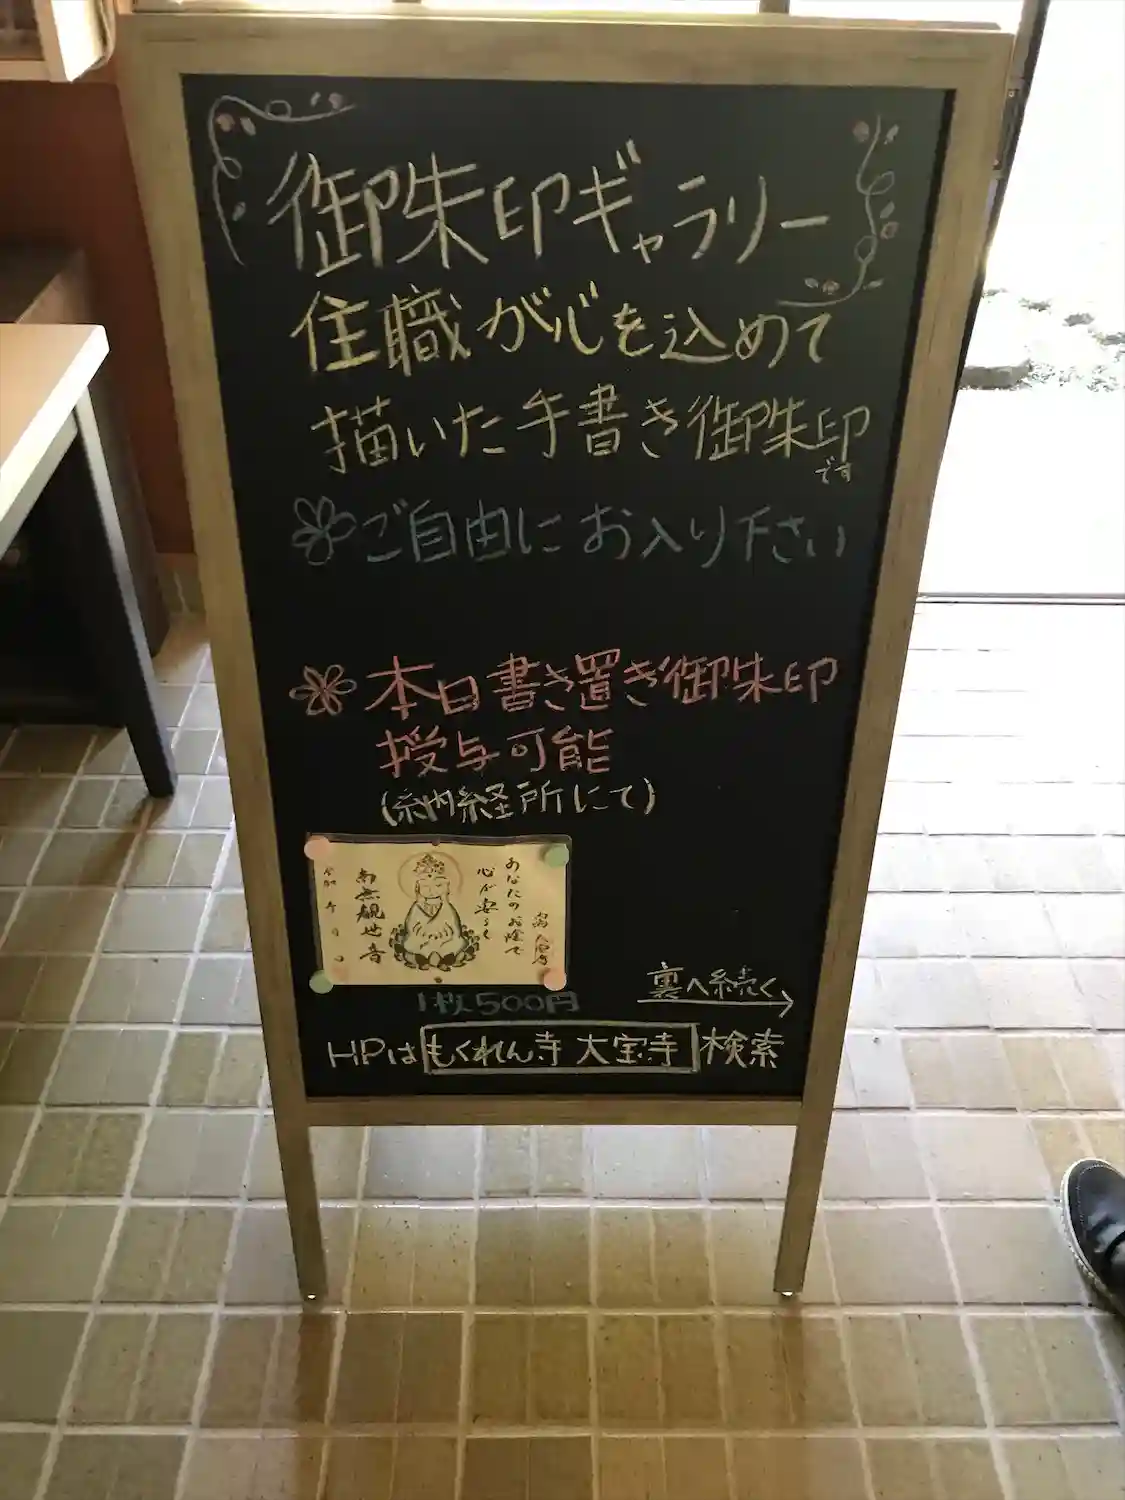 御朱印ギャラリー
住職が心を込めて
描いた手書き御朱印
です
ご自由にお入り下さい
本日書き置き御朱印
授与可能
(納経所にて)
あなたのお陰で
心が安らぐ
南無観世音
1枚500円
裏へ続く
HPは もくれん寺 大宝寺 検索